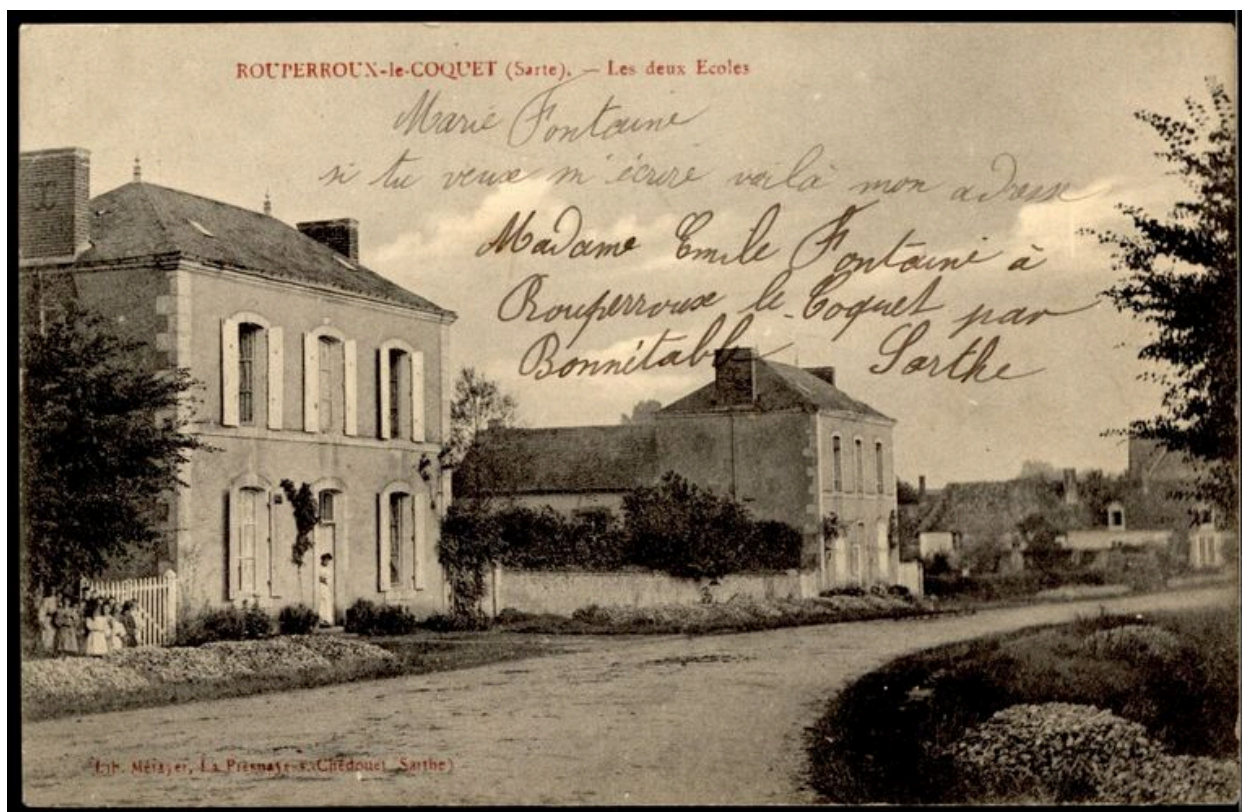 ROUPERROUX-le-COQUET (Sarte). — Les deux Ecoles
Marie Fontaine
si tu veux m'écrire voilà mon adresse
Madame Emile Fontaine à
Rouperroux le Coquet par
Bonnétable Sarthe
Lib. Mérayer, La Fresnaye-s-Chédouet (Sarthe)